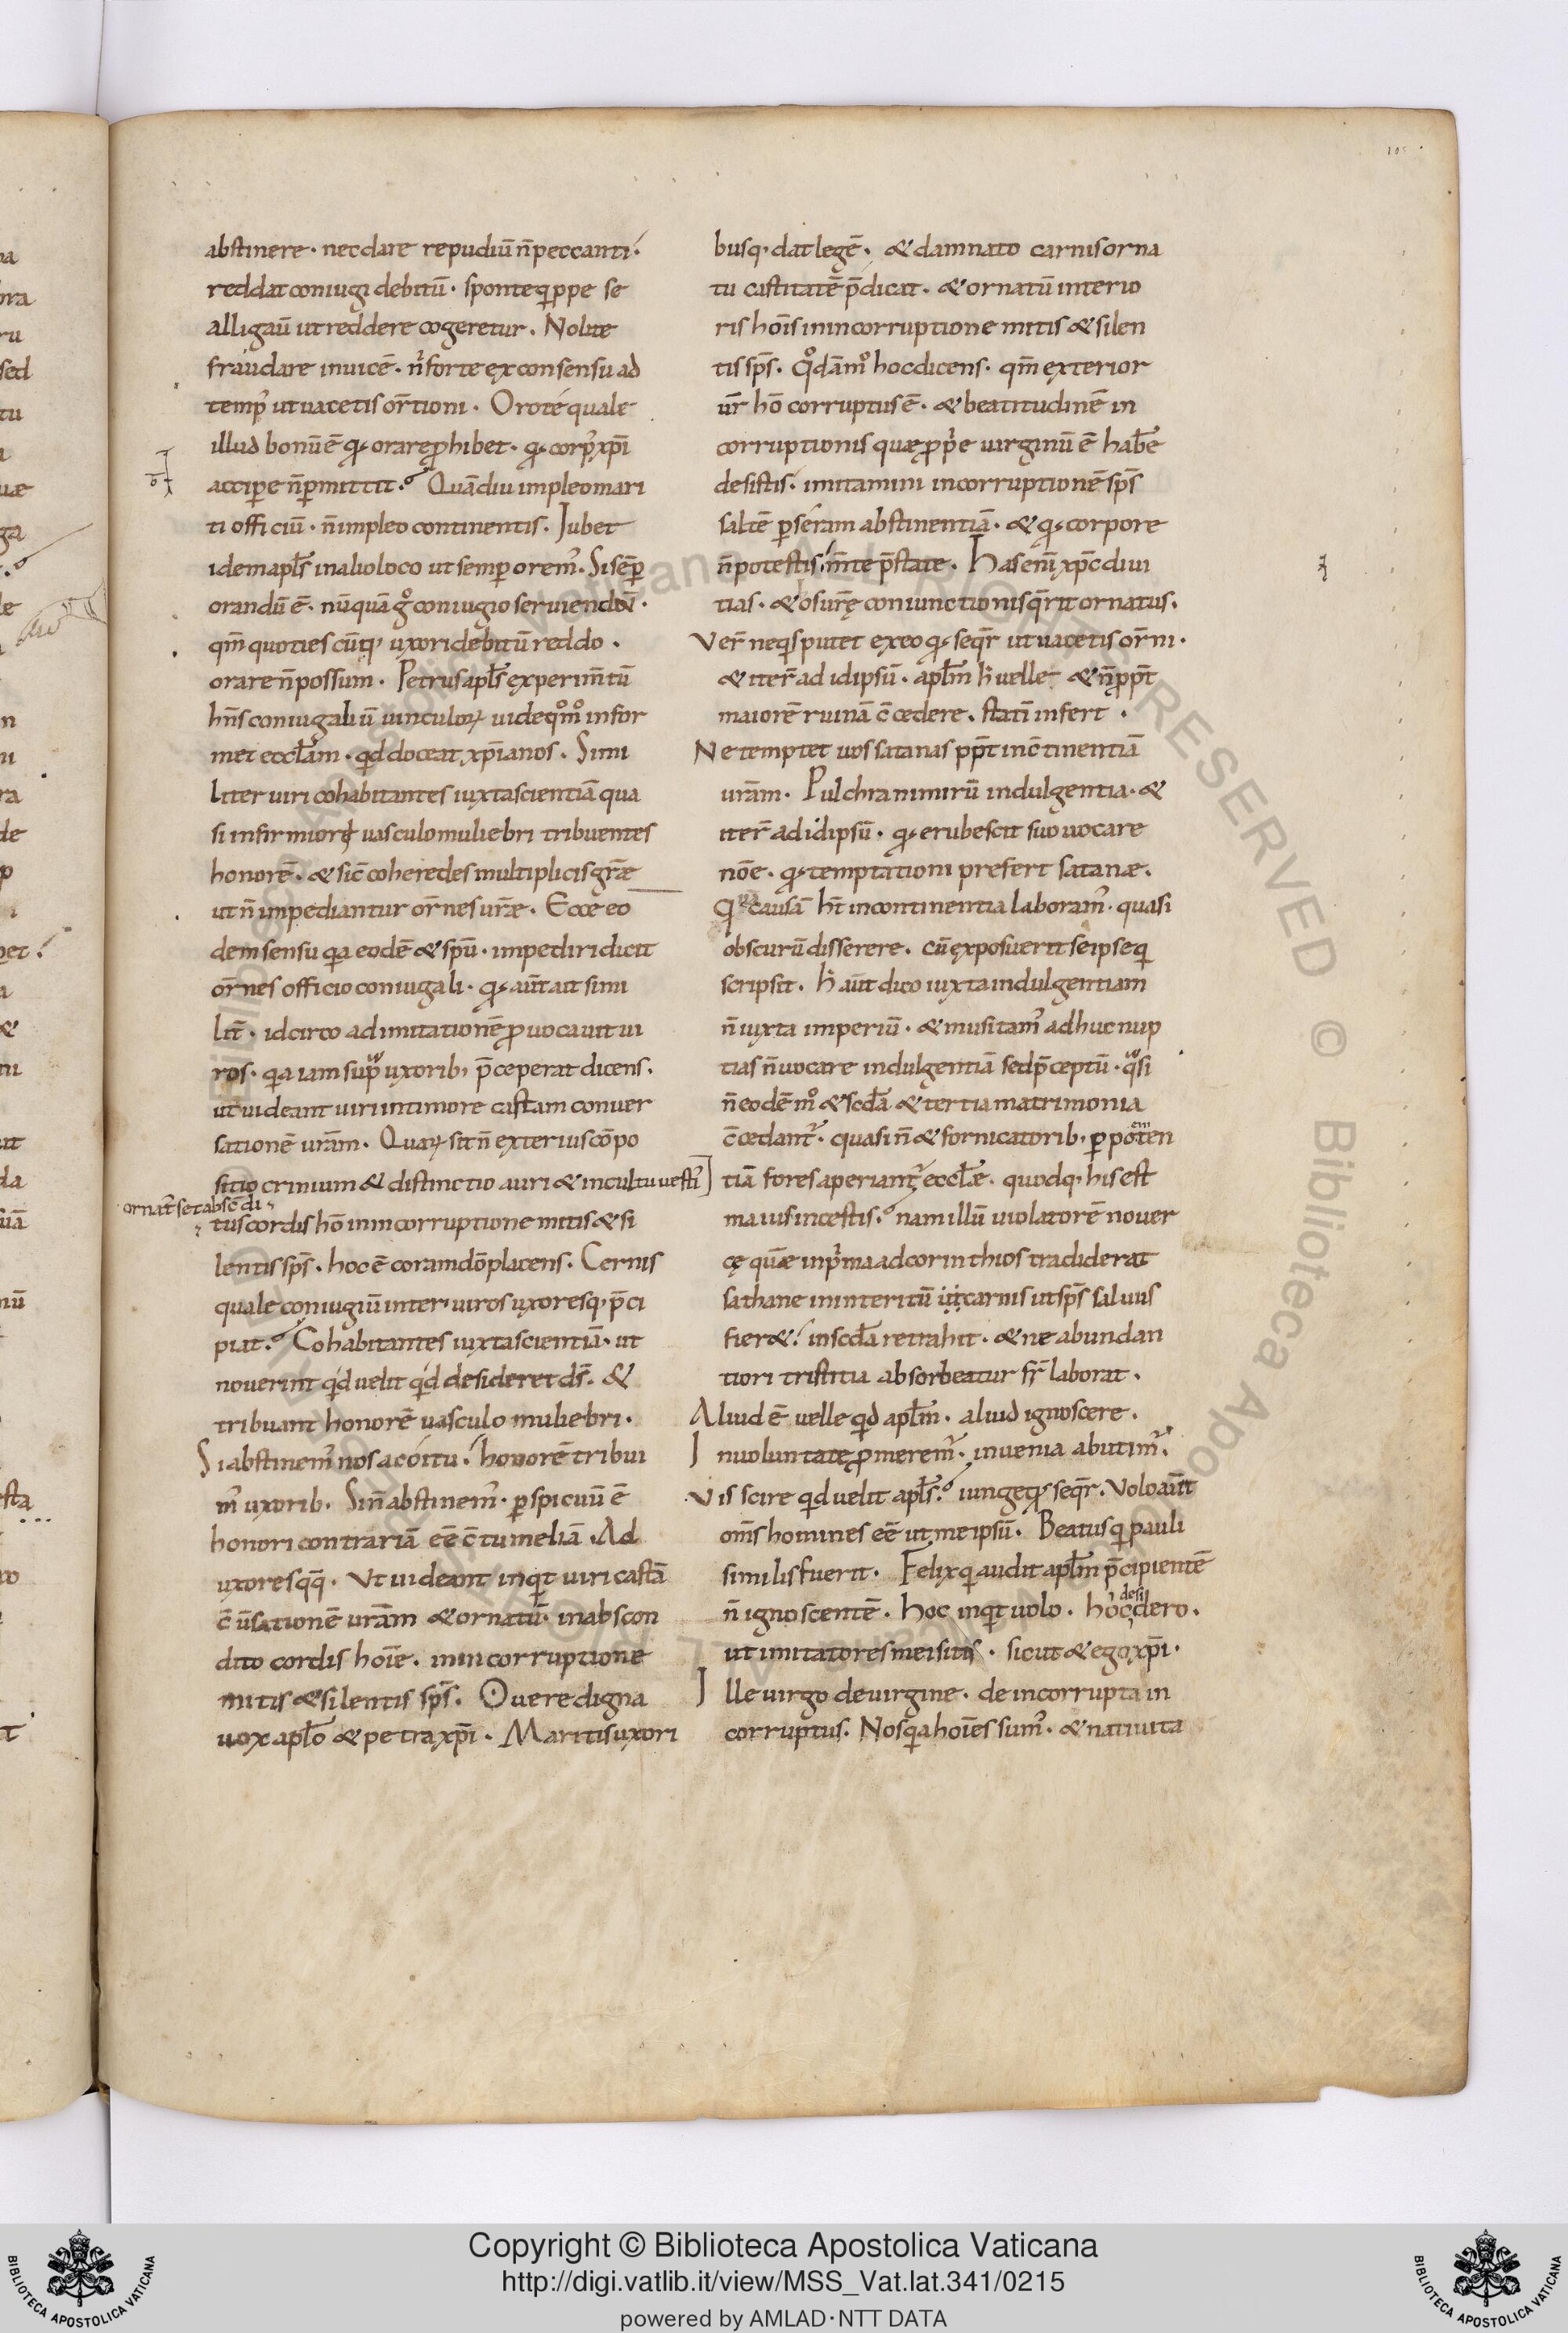 abstinere. nec dare repudiū n̄ peccanti.
reddat coniugi debitū. sponte q̱ppe se
alligauit̄ ut reddere cogeretur. Nolite
fraudare inuicē. n̄ forte ex consensu ad
temp᾽ ut uacetis or̄tioni. Oro te quale
illud bonū ē qđ orare ꝓhibet. qđ corp᾽ xp̄i
accipe n̄ pmittit. Quādiu impleo mari
ti officiū. n̄ impleo continentis. Iubet
idem apl̄s in alio loco ut semp orem᾽. Si sēp
orandū ē. nūquā g° coniugio seruiendū.
qm̄ quoties cūq; uxori debitū reddo.
orare n̄ possum. Petrus apl̄s experim̄tū
hn̄s coniugaliū uinculoꝝ uide qm̊ infor
met eccl̄am. qđ doceat xp̄ianos. Simi
liter uiri cohabitantes iuxta scientiā qua
si infirmiori uasculo muliebri tribuentes
honorē. & sic̄ coheredes multiplicis gr̄æ
ut n̄ impediantur or̄nes ur̄æ. Ecce eo
dem sensu q̱a eodē & spū. impediri dicit
or̄nes officio coniugali. qđ aut̄ ait simi
lit̄. idcirco ad imitationē ꝓuocauit ui
ros. q̱a iam supͣ uxorib; p̄ceperat dicens.
ut uideant uiri in timore castam conuer
sationē ur̄am. Quaꝝ sit n̄ exterius cōpo
sitio crinium & distinctio auri & in cultu uesti]
ornat᾽ set absc̄di
tus cordis hō in incorruptione mitis & si
lentis sp̄s. hoc ē coram dō placens. Cernis
quale coniugiū inter uiros uxoresq; p̄ci
piat. Cohabitantes iuxta scientiā. ut
nouerint qđ uelit qđ desideret ds̄. &
tribuant honorē uasculo muliebri.
Si abstinem᾽ nos a coitu. honorē tribui
m᾽ uxorib. Si n̄ abstinem᾽. pspicuū ē
honori contrariā eē c̄tumeliā. Ad
uxores qq̄. Ut uideant inq̱t uiri castā
c̄u͞sationē ur̄am & ornatū. in abscon
dito cordis hoīe. in incorruptione
mitis & silentis sp̄s. O uere digna
uox apl̄o & petra xp̄i. Maritis uxori
busq; dat legē. & damnato carnis orna
tu castitatē p̄dicat. & ornatū interio
ris hoīs in incorruptione mitis & silen
tis sp̄s. q°dām° hoc dicens. qm̄ exterior
ur̄ hō corruptus ē. & beatitudinē in
corruptionis quæ ꝓp̱e uirginū ē habe͞
desistis. imitamini incorruptionē sp̄s
saltē p seram abstinentiā. & qđ corpore
n̄ potestis m̄te p̄state. Has eni͞ xp̄c diui
tias. & os ur̄ę coniunctionis q̄rit ornatus.
Ver̄ ne q̱s putet ex eo qđ seq̄r ut uacetis or̄ni.
& iter̄ ad idipsū. apl̄m ẖ uelle & n̄ ppt̄
maiorē ruinā c̄cedere. statī infert.
Ne temptet uos satanas ppt̄ inc̄tinentiā
ur̄am. Pulchra nimirū indulgentia. &
iter̄ ad idipsū. qđ erubescit suo uocare
nōe. qđ temptationi prefert satanæ.
causā ht̄ incontinentia laboram᾽. quasi
obscurū disserere. cū exposuerit se ipse q̱
scripsit. ẖ aūt dico iuxta indulgentiam
n̄ iuxta imperiū. & musitam᾽ adhuc nup
tias n̄ uocare indulgentiā sed p̄ceptū. q̱si
n̄ eodē m° & scđa & tertia matrimonia
c̄cedant᾽. quasi n̄ & fornicatorib; p poēniten
tiā fores aperiant᾽ eccl̄æ. quodq; his est
maius incestis. nam illū uiolatorē nouer
cę quē in p̱ma ad corinthios tradiderat
sathane in interitū carnis ut sp̄s saluus
fier&. in scđa retrahit. & ne abundan
tiori tristitia absorbeatur fr̄ laborat.
Aliud ē uelle qđ apl̄m. aliud ignoscere.
In uoluntate ꝓmerem᾽. in uenia abutim᾽.
Vis scire qđ uelit apl̄s. iunge qđ seq̄r. Volo aūt
om̄s homines eē ut me ipsū. Beatus q̱ pauli
similis fuerit. Felix q̱ audit apl̄m p̄cipientē
n̄ ignoscentē. Hoc inq̱t uolo. hoc desidero.
ut imitatores mei sitis. sicut & ego xp̄i.
Ille uirgo de uirgine. de incorrupta in
corruptus. Nos q̱a hoīes sum᾽. & natiuita
Copyright © Biblioteca Apostolica Vaticana
http://digi.vatlib.it/view/MSS_Vat.lat.341/0215
powered by AMLAD·NTT DATA